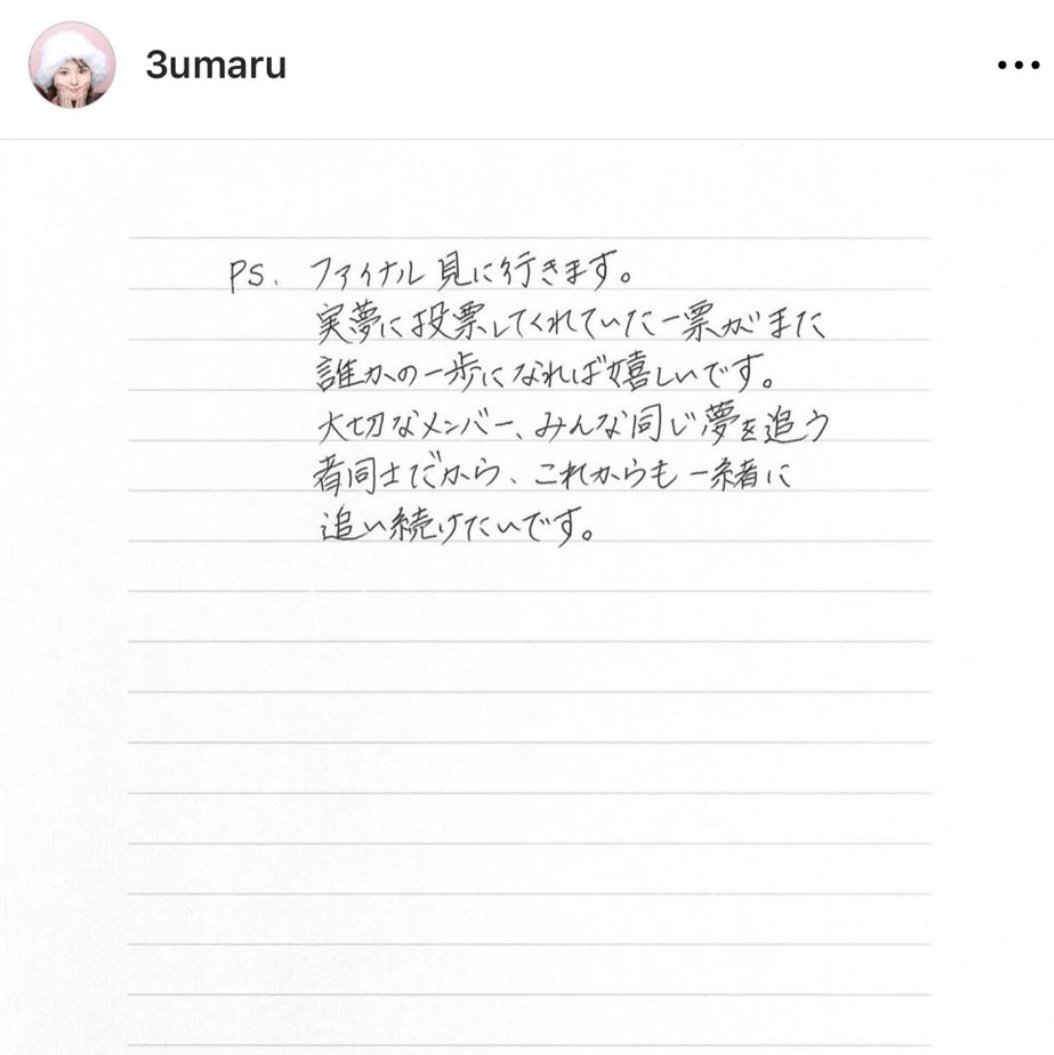 3umaru
PS. ファイナル見に行きます。
実夢に投票してくれていた一票がまた
誰かの一歩になれば嬉しいです。
大切なメンバー、みんな同じ夢を追う
者同士だから、これからも一緒に
追い続けたいです。